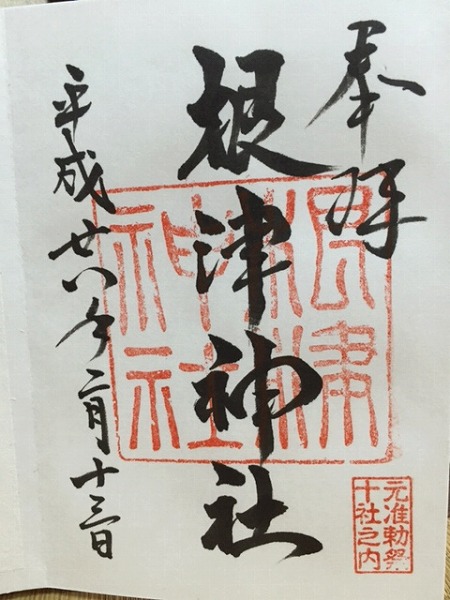 奉拝
根津神社
平成廿八年二月十三日
根津
神社
元准勅祭
十社之内